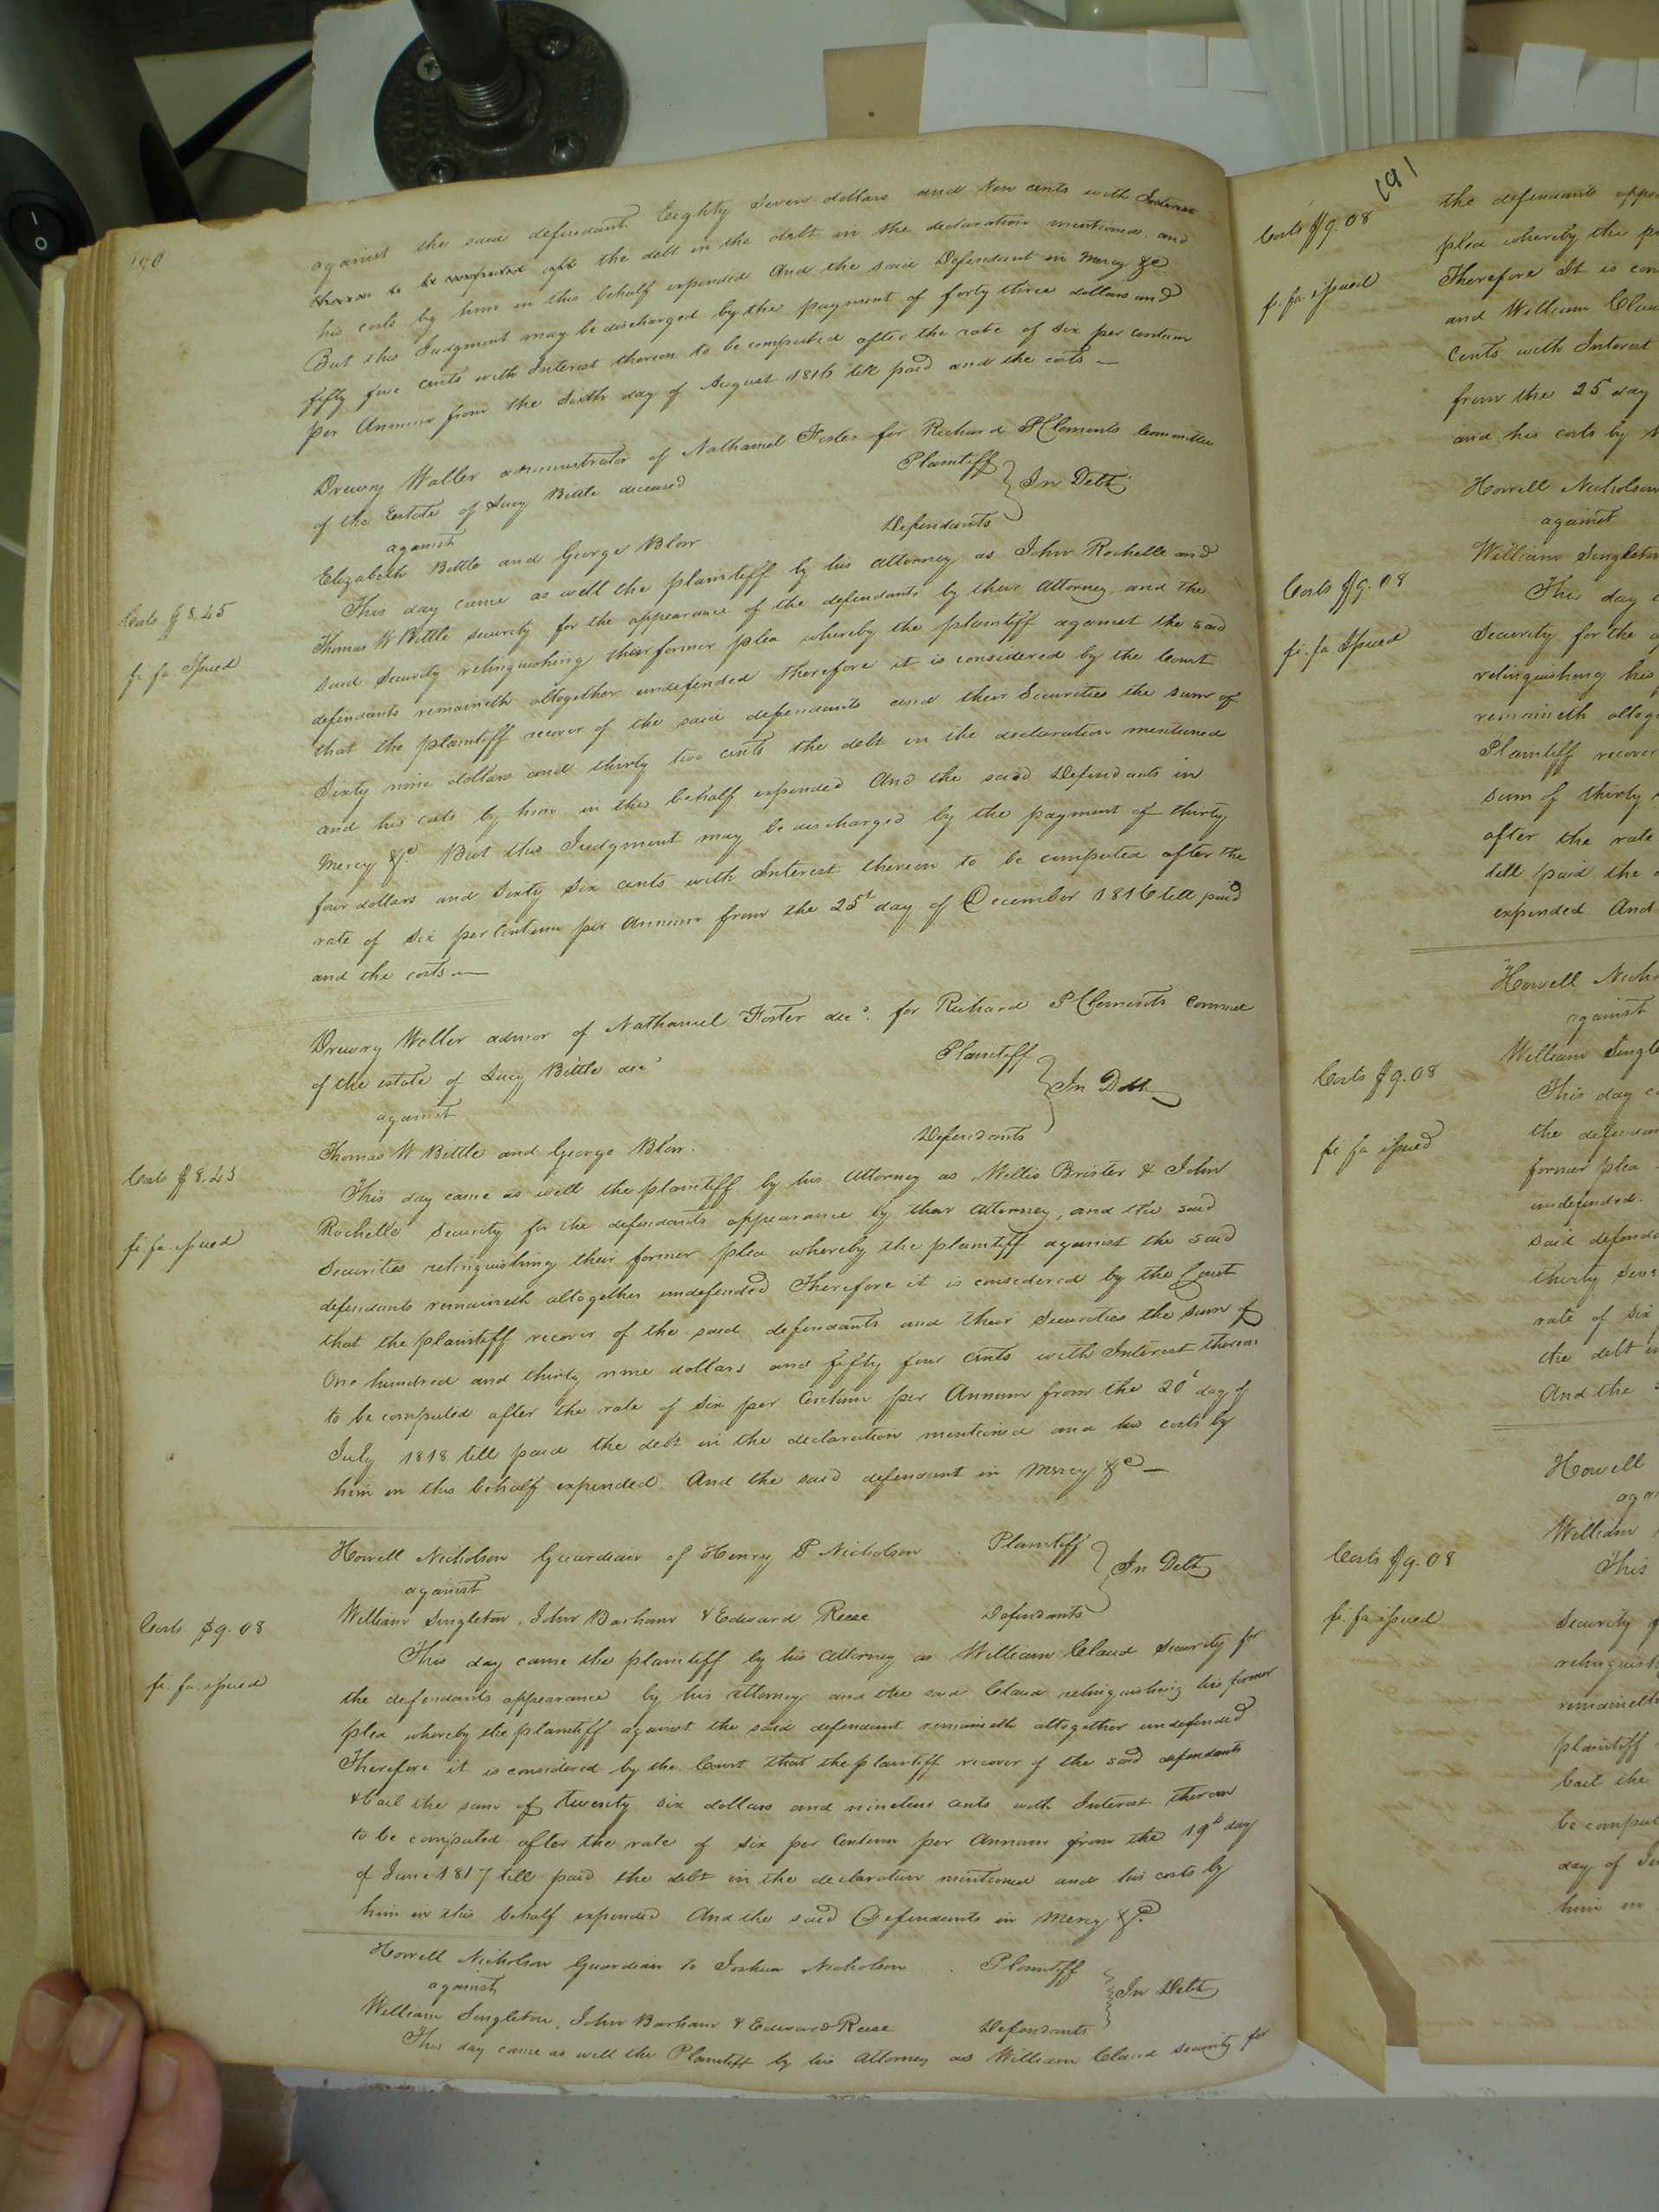 190
against the said defendant Eighty Seven dollars and ten cents with Interest
thereon to be computed aft the debt in the debt in the declaration mentioned and
his costs by him in this behalf expended And the said Defendant in Mercy &c
But this Judgment may be discharged by the payment of forty three dollars and
fifty five cents with Interest thereon to be computed after the rate of six per centum
per Annum from the Sixth day of August 1816 till paid and the costs —
Drewry Waller administrator of Nathaniel Foster for Richard P Clements Committee
of the Estate of Lucy Bittle deceased Plaintiff
against In Debt
Elizabeth Bittle and George Blow Defendants
Costs $8.45
fi. fa. Issued
This day came as well the plaintiff by his attorney as John Rochelle and
Thomas W Bittle security for the appearance of the defendants by their attorney, and the
said Security relinquishing their former plea whereby the plaintiff against the said
defendants remaineth altogether undefended therefore it is considered by the Court
that the plaintiff recover of the said defendants and their Securities the sum of
Sixty nine dollars and thirty two cents the debt in the declaration mentioned
and his costs by him in this behalf expended And the said Defendants in
Mercy &c. But this Judgment may be discharged by the payment of thirty
four dollars and Sixty Six cents with Interest thereon to be computed after the
rate of Six per Centum per Annum from the 25t day of December 1816 till paid
and the costs —
Drewry Waller admor of Nathaniel Foster decd. for Richard P Clements Commee
of the estate of Lucy Bittle decd Plaintiff
against In Debt
Thomas W Bittle and George Blow. Defendants
Costs $8.45
fi. fa. issued
This day came as well the plaintiff by his attorney as Willis Brister & John
Rochelle Security for the defendants appearance by their attorney, and the said
Securities relinquishing their former plea whereby the plaintiff against the said
defendants remaineth altogether undefended Therefore it is considered by the Court
that the plaintiff recover of the said defendants and their Securities the sum of
One hundred and thirty nine dollars and fifty four cents with Interest thereon
to be computed after the rate of six per Centum per Annum from the 20t day of
July 1818 till paid the debt in the declaration mentioned and his costs by
him in this behalf expended. And the said defendant in Mercy &c —
Howell Nicholson Guardian of Henry P Nicholson. Plaintiff
against In Debt
William Singleton, John Barham & Edward Reese Defendants
Costs $9.08
fi. fa. issued
This day came the plaintiff by his attorney as William Claud Security for
the defendants appearance by his attorney and the said Claud relinquishing his former
plea whereby the plaintiff against the said defendant remaineth altogether undefended
Therefore it is considered by the Court that the plaintiff recover of the said defendants
& bail the sum of twenty six dollars and nineteen cents with Interest thereon
to be computed after the rate of six per Centum per Annum from the 19th day
of June 1817 till paid the debt in the declaration mentioned and his costs by
him in this behalf expended And the said Defendants in Mercy &c.
Howell Nicholson Guardian to Joshua Nicholson. Plaintiff
against In Debt
William Singleton, John Barham & Edward Reese Defendants
This day came as well the Plaintiff by his attorney as William Claud security for
191
Costs $9.08
fi. fa. issued
the defendants appe
plea whereby the p
Therefore It is con
and William Clau
Cents with Interest
from the 25t day
and his costs by
Howell Nicholson
against
William Singleton
Costs $9.08
fi. fa. Issued
This day
Security for the a
relinquishing his
remaineth altog
Plaintiff recover
sum of thirty
after the rate
till paid the
expended. And
Howell Nicho
against
William Singl
Costs $9.08
fi fa issued
This day c
the defendan
former plea
undefended.
said defenda
thirty Seve
rate of Six
the debt in
And the
Howell
aga
William
Costs $9.08
fi. fa. issued
This
Security f
relinquish
remaineth
plaintiff
bail the
be comput
day of Ju
him in